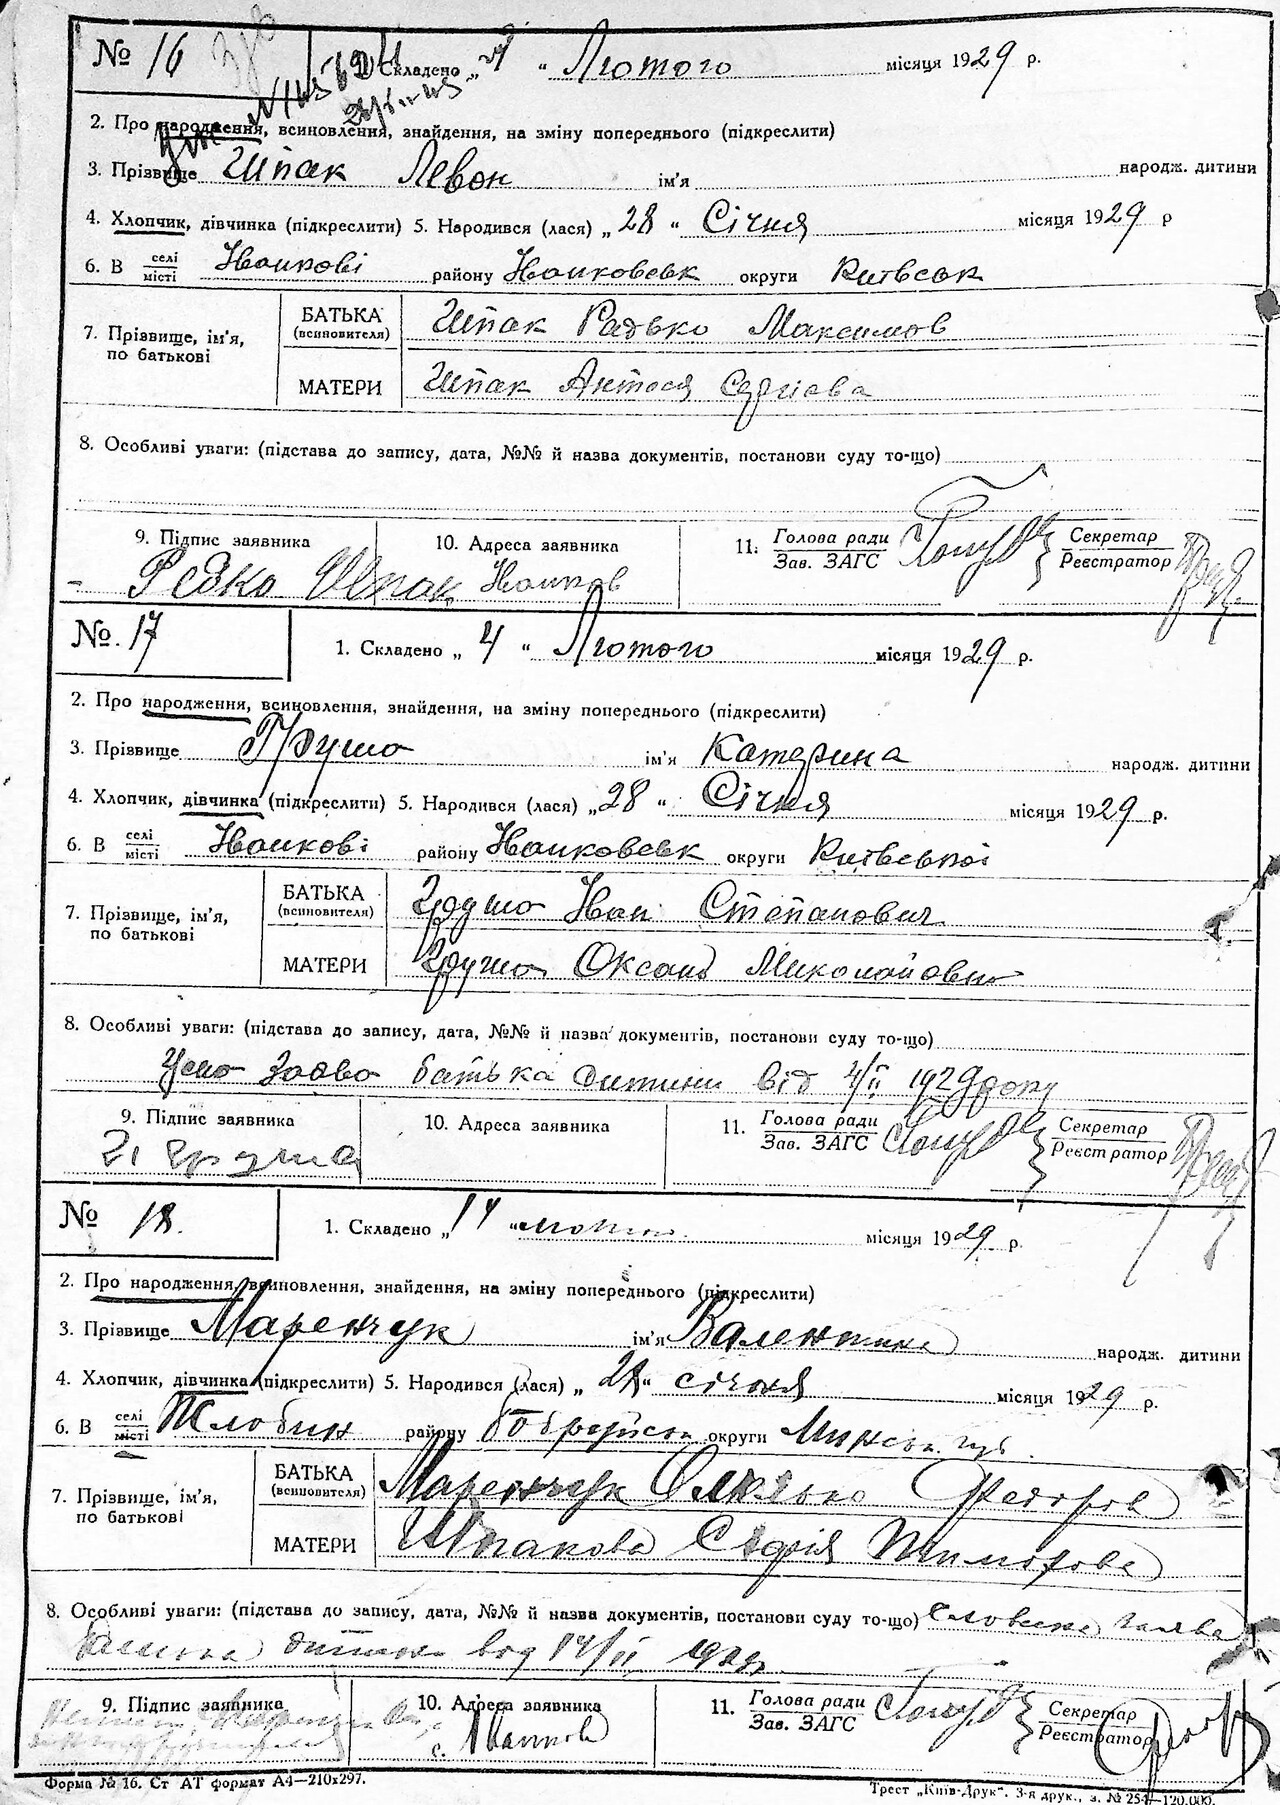 № 16 1. Складено „4" Лютого місяця 1929 р.
2. Про народження, всиновлення, знайдення, на зміну попереднього (підкреслити)
3. Прізвище Шпак Левон ім'я народж. дитини
4. Хлопчик, дівчинка (підкреслити) 5. Народився (лася) „28" Січня місяця 1929 р
6. В селі/місті Іванкові району Іванковськ округи Київськ
7. Прізвище, ім'я, по батькові
БАТЬКА (всиновителя) Шпак Радько Максимов
МАТЕРИ Шпак Антося Сергіева
8. Особливі уваги: (підстава до запису, дата, №№ й назва документів, постанови суду то-що)
9. Підпис заявника 10. Адреса заявника 11. Голова ради/Зав. ЗАГС Секретар/Реєстратор
Редко Шпак Іванков
№ 17 1. Складено „4" Лютого місяця 1929 р.
2. Про народження, всиновлення, знайдення, на зміну попереднього (підкреслити)
3. Прізвище Груша ім'я Катерина народж. дитини
4. Хлопчик, дівчинка (підкреслити) 5. Народився (лася) „28" Січня місяця 1929 р.
6. В селі/місті Іванкові району Іванковськ округи Київської
7. Прізвище, ім'я, по батькові
БАТЬКА (всиновителя) Груша Іван Степанович
МАТЕРИ Груша Оксана Миколайовна
8. Особливі уваги: (підстава до запису, дата, №№ й назва документів, постанови суду то-що)
Усна заява батька дитини від 4/II 1929 року
9. Підпис заявника 10. Адреса заявника 11. Голова ради/Зав. ЗАГС Секретар/Реєстратор
І. Груша
№ 18. 1. Складено „14" лютого місяця 1929 р.
2. Про народження, всиновлення, знайдення, на зміну попереднього (підкреслити)
3. Прізвище Маренчук ім'я Валентина народж. дитини
4. Хлопчик, дівчинка (підкреслити) 5. Народився (лася) „ " січоня місяця 1929 р.
6. В селі/місті Жлобин району Бобруйськ округи Минськ. губ
7. Прізвище, ім'я, по батькові
БАТЬКА (всиновителя) Маренчук Федоров
МАТЕРИ Шпакова Софія Тимофова
8. Особливі уваги: (підстава до запису, дата, №№ й назва документів, постанови суду то-що) Словесна заява
батька дитини від 14/II 1929
9. Підпис заявника 10. Адреса заявника 11. Голова ради/Зав. ЗАГС Секретар/Реєстратор
с. Іванков
Форма № 16. Ст АТ формат А4—210х297. Трест „Київ-Друк". 3-я друк., з. № 254—120.000.